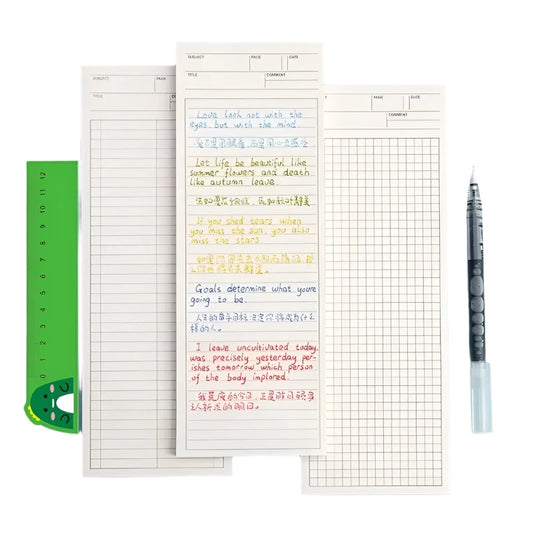 SUBJECT PAGE DATE
TITLE COMMENT
Love look not with the
eyes, but with the mind.
爱不是用眼看,而是用心去感受
Let life be beautiful like
summer flowers and death
like autumn leave.
生如夏花绚烂,死如秋叶静美
If you shed tears when
you miss the sun, you also
miss the stars.
Goals determine what you're
going to be.
人生的奋斗目标决定你将成为什么
样的人。
I leave uncultivated today,
was precisely yesterday per-
ishes tomorrow which person
of the body implored.
SUBJECT PAGE
TITLE
PAGE DATE
COMMENT
0 1 2 3 4 5 6 7 8 9 10 11 12